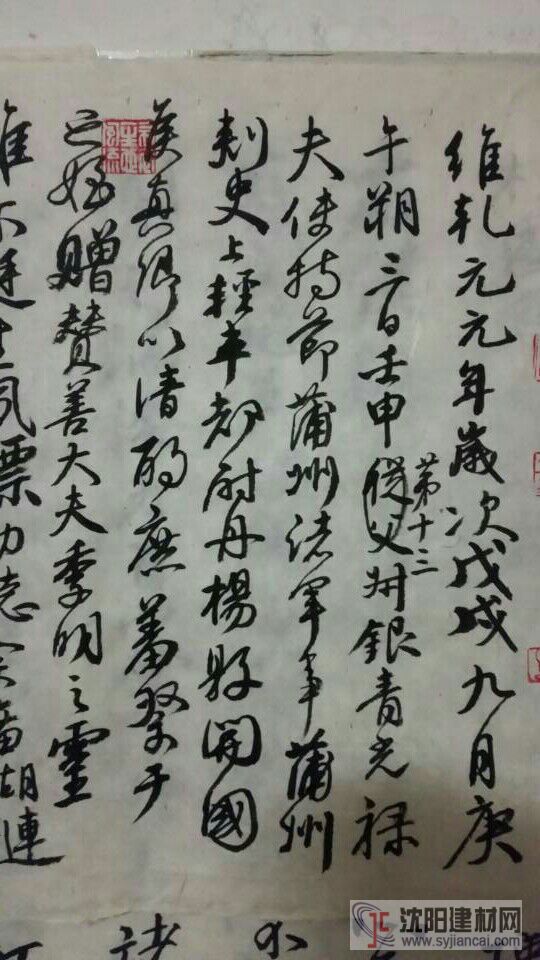 维乹元元年歲次戊戌九月庚
午朔三日壬申從父
第十三
州銀青光禄
夫使持節蒲州諸軍事蒲州
刺史上輕車都尉丹楊縣開國
侯真卿以清酌庶羞祭于
亡姪贈賛善大夫季明之靈
惟尔挺生夙標幼德宗廟瑚連
諸
尔
沈阳建材网
www.syjiancai.com